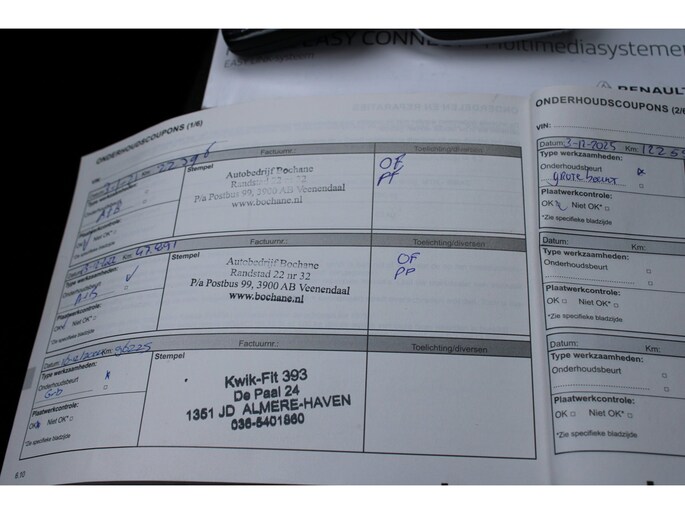 EASY CONNE
Multimediasysteme
EASY LINK-systeem
RENAULT
ONDERHOUDSCOUPONS (1/6)
VIN:
Km: 22396
Factuurnr.:
Toelichting/diversen
Type werkzaamheden:
Onderhoudsbeurt
A1B
Plaatwerkcontrole:
OK Niet OK*
*Zie specifieke bladzijde
Stempel
Autobedrijf Bochane
Randstad 22 nr 32
P/a Postbus 99, 3900 AB Veenendaal
www.bochane.nl
OF
PF
Datum:
Km: 47891
Factuurnr.:
Toelichting/diversen
Type werkzaamheden:
Onderhoudsbeurt
A1B
Plaatwerkcontrole:
OK Niet OK*
*Zie specifieke bladzijde
Stempel
Autobedrijf Bochane
Randstad 22 nr 32
P/a Postbus 99, 3900 AB Veenendaal
www.bochane.nl
OF
PP
Datum:
Km: 96225
Factuurnr.:
Toelichting/diversen
Type werkzaamheden:
Onderhoudsbeurt
Plaatwerkcontrole:
OK Niet OK*
*Zie specifieke bladzijde
Stempel
Kwik-Fit 393
De Paal 24
1351 JD ALMERE-HAVEN
036-5401860
6.10
ONDERHOUDSCOUPONS (2/6
VIN:
Datum: 3-12-2025 Km:
Type werkzaamheden:
Onderhoudsbeurt
grote beurt
Plaatwerkcontrole:
OK Niet OK*
*Zie specifieke bladzijde
Datum: Km:
Type werkzaamheden:
Onderhoudsbeurt
Plaatwerkcontrole:
OK Niet OK*
*Zie specifieke bladzijde
Datum: Km:
Type werkzaamheden:
Onderhoudsbeurt
Plaatwerkcontrole:
OK Niet OK*
*Zie specifieke bladzijde